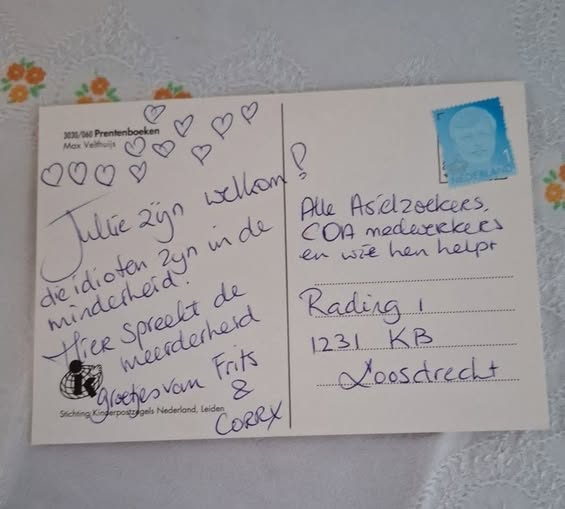 3030/060 Prentenboeken
Max Velthuijs
Jullie zijn welkom!
die idioten zijn in de
minderheid.
Hier spreekt de
meerderheid
groetjes van Frits
&
CORRY
ik
Stichting Kinderpostzegels Nederland, Leiden
1
NEDERLAND
Alle Asielzoekers,
COA medewerkers
en wie hen helpt
Rading 1
1231 KB
Loosdrecht